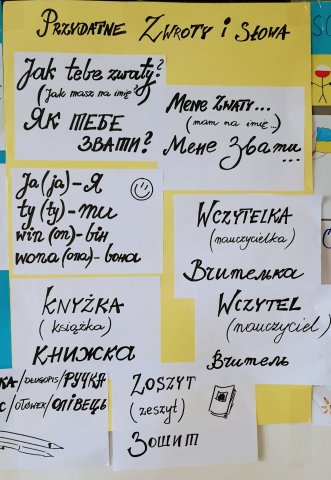 Przydatne Zwroty i Słowa
Jak tebe zwaty?
(Jak masz na imię?)
Як тебе
звати?
Mene zwaty...
(mam na imię...)
Мене звати
...
Ja (ja) - Я
ty (ty) - ти
win (on) - він
wona (ona) - вона
Wczytelka
(nauczycielka)
Вчителька
Knyżka
(książka)
Книжка
Wczytel
(nauczyciel)
Вчитель
KA/DŁUGOPIS/РУЧКА
C/OŁÓWEK/ОЛІВЕЦЬ
Zoszyt
(zeszyt)
Зошит